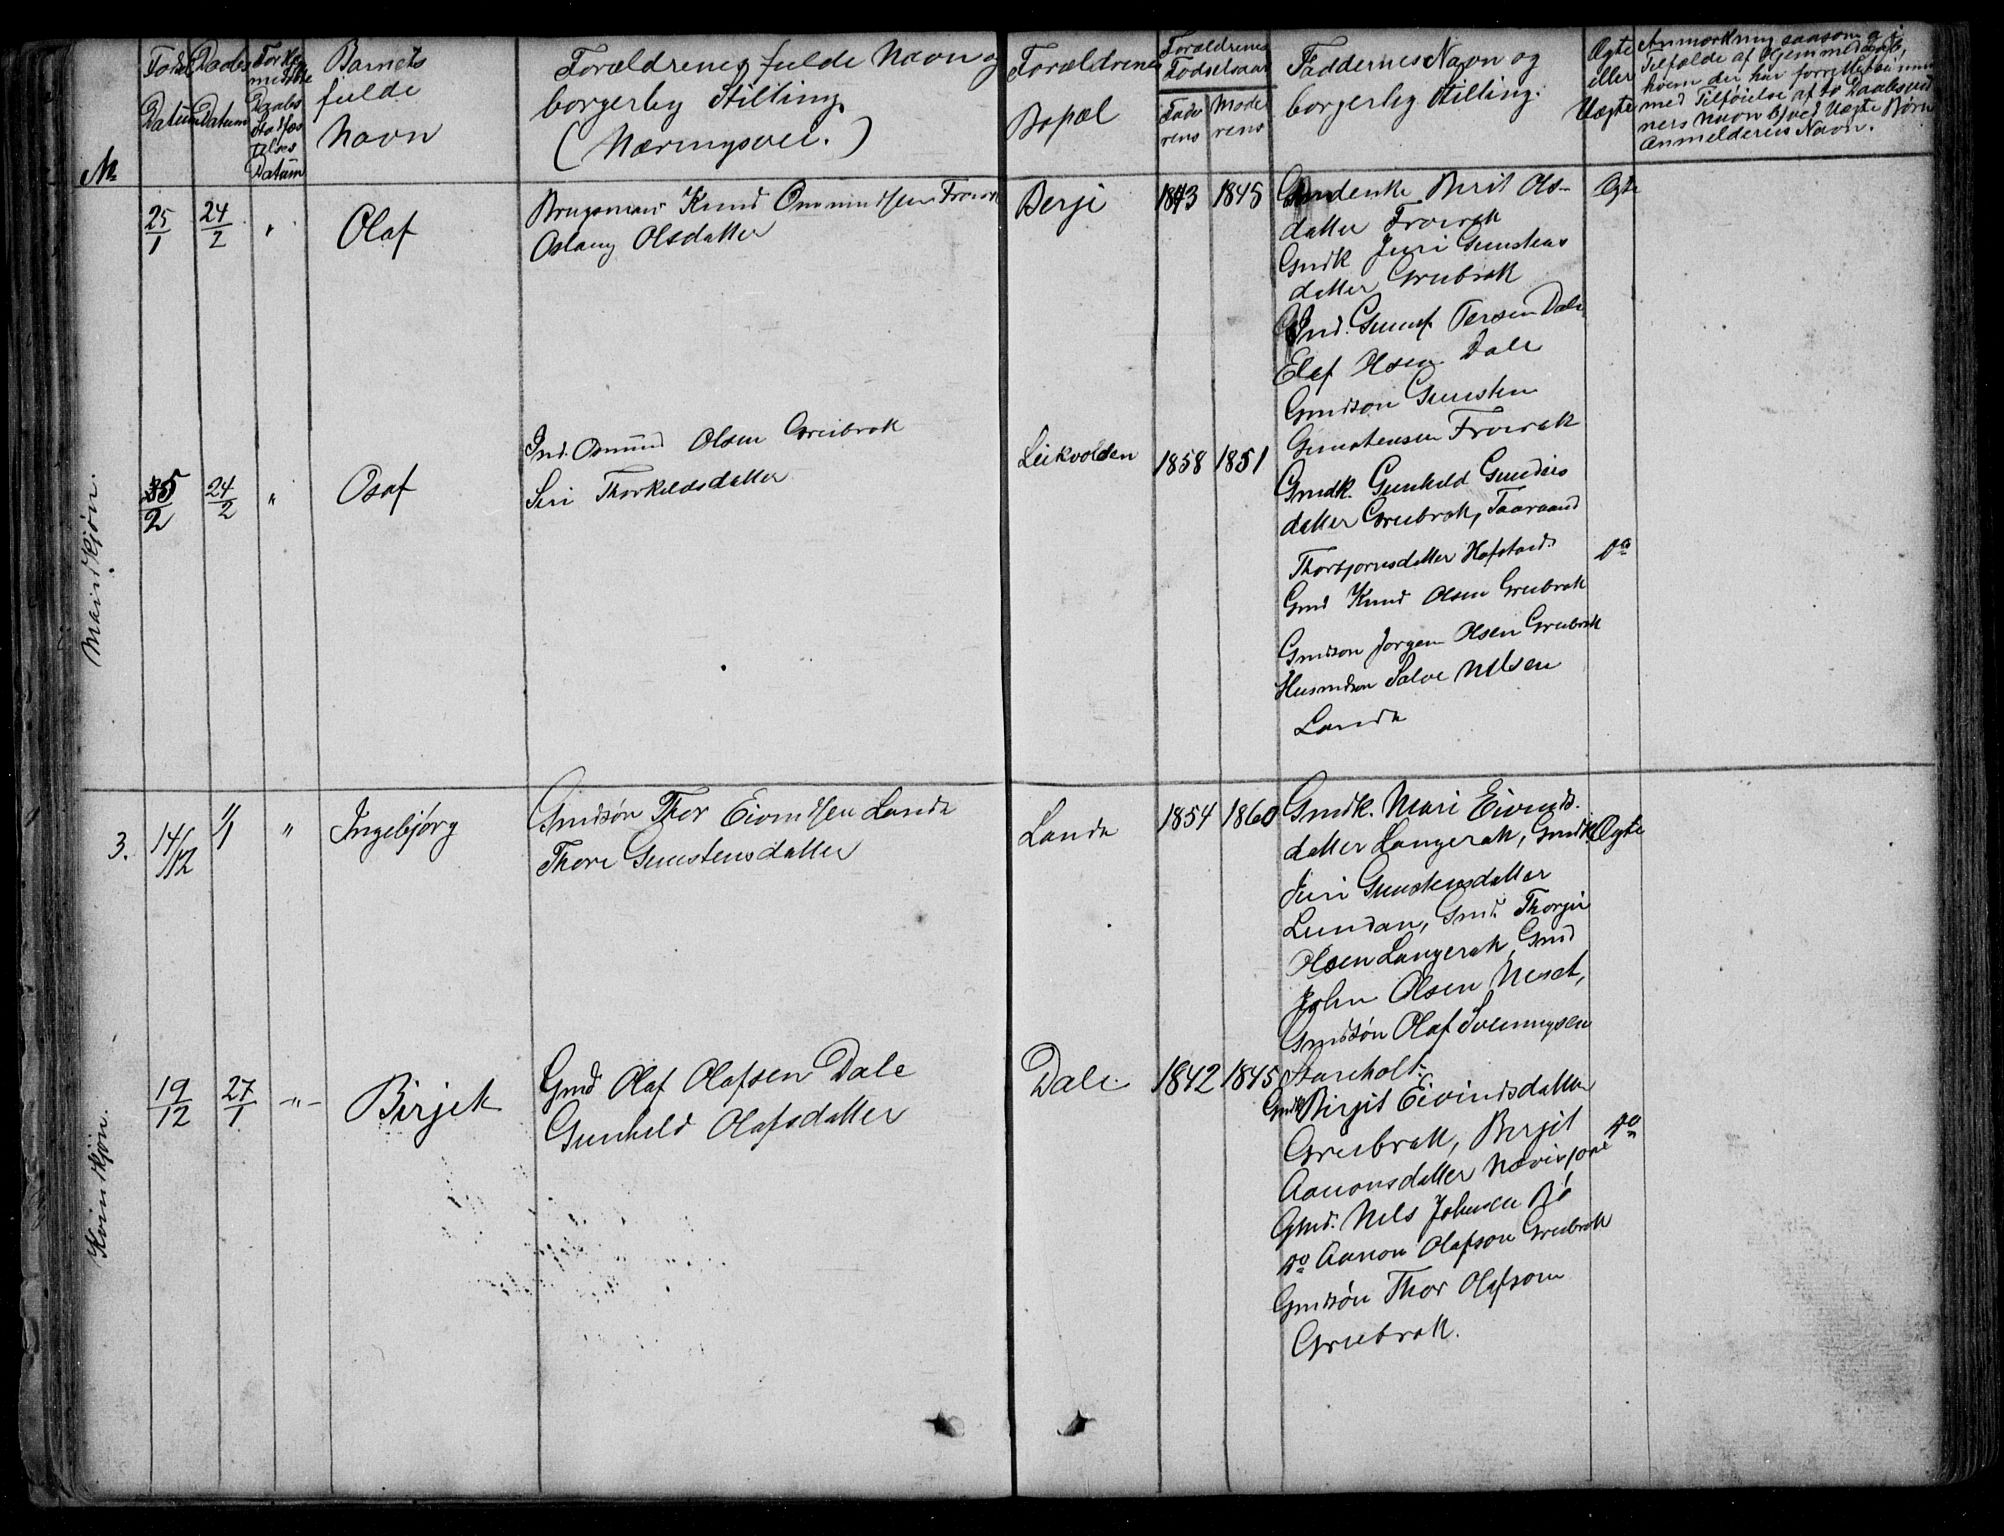 №
Føds
Datum
Daabs
Datum
Datum
Barnets
fulde
Navn
Forældrenes fulde Navn og
borgerlig Stilling.
(Næringsvei.)
Forældrenes
Bopæl
Forældrenes
Fødselsaar
Fade
rens
Mode
rens
Faddernes Navn og
borgerlig Stilling.
Ægte
eller
Uægte
Anmærkning saasom a, i
Tilfælde af Hjemmedaab,
hvem der har forrettet
med Tilføielse af to Daabsvid
ners Navn b, ved Uægte Børn
Anmelderens Navn.
Mandkjøn.
25/1 24/2 " Olaf
Brugsman Knud Ommundsen Froirak
Aslaug Olsdatter
Berje 1843 1845
Gmdenke Berit Ols-
datter Froirak
Gmdk Juri Gunstens
datter Greibrok
Gmd. Gunuf Tersen Dale
Elef Olsen Dale
Gmdsøn Gunsten
Gunstensen Froirak
Ægte
5/2 24/2 " Osaf
Ind. Osmund Olsen Greibrok
Siri Thorkildsdatter
Leikvolden 1858 1851
Gmdk. Gunhild Gunders
datter Greibrok, Taaraand
Thorbjornsdatter Hofstad
Gmd Knud Olsen Greibrok
Gmdsøn Jorgen Olsen Greibrok
Husmdsøn Salve Nilsen
Landa
do
Kvindkjøn.
3. 14/12 1/1 " Ingebjørg
Gmdsøn Thor Eivindsen Landa
Thore Gunstensdatter
Landa 1854 1860
Gmdk. Mari Eivinds-
datter Langerak, Gmdk
Juri Gunstensdatter
Lundan, Gmd. Thorjus
Olsen Langerak, Gmd
John Olsen Neset,
Gmdsøn Olaf Sveinungsen
Stareholt.
Ægte
19/12 27/1 -"- Birjet
Gmd Olaf Olafsen Dale
Gunhild Olafsdatter
Dale. 1842 1845
Gmdk Birjit Eivindsdatter
Greibrok, Berjit
Aanonsdatter
Gmd. Nils Johnsen Bø
do Aanon Olafson Greibrok
Gmdsøn Thor Olafson
Greibrok.
do